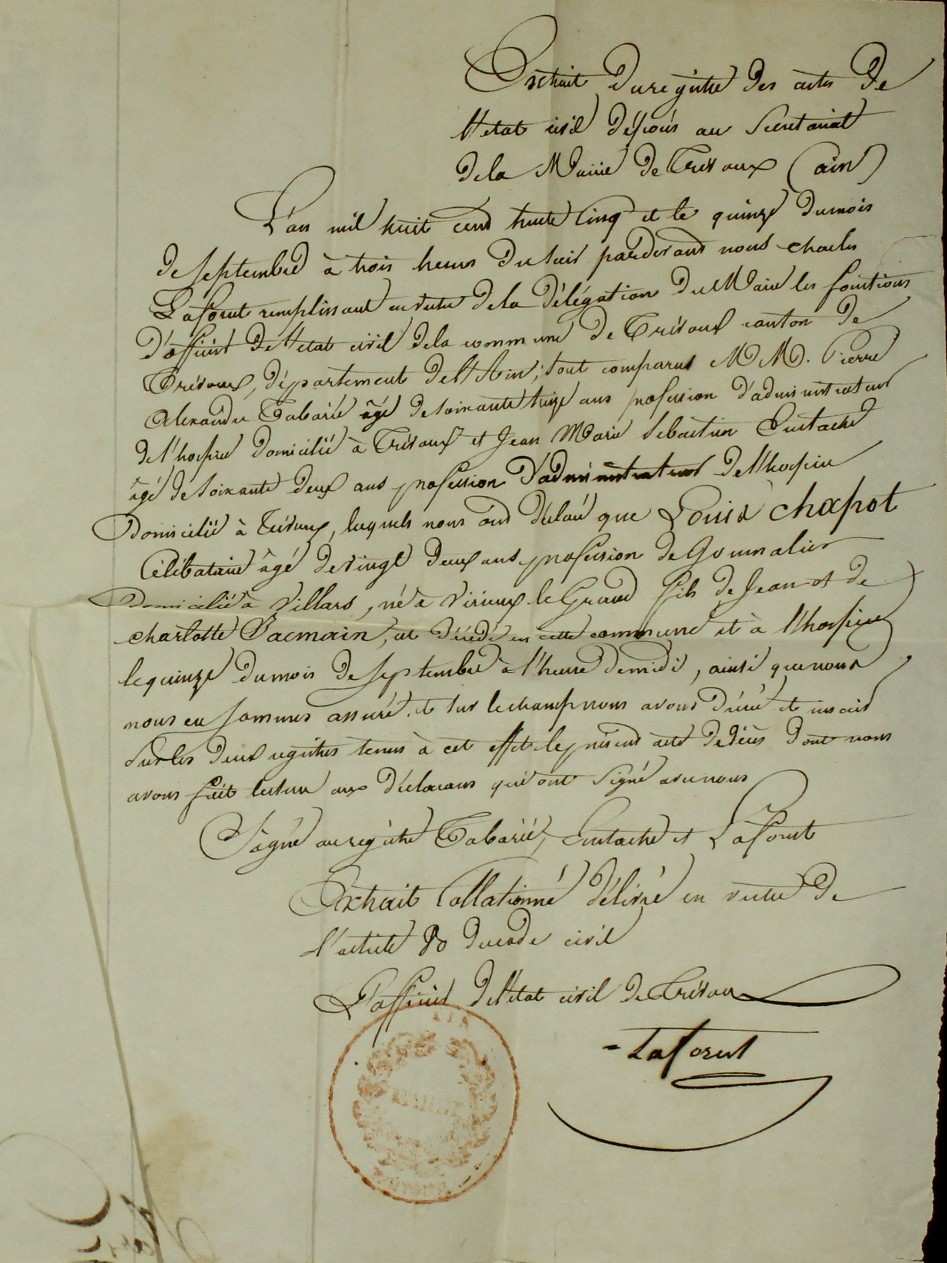 Extrait du registre des actes de
l'etat civil déposés au Secretariat
de la Mairie de Trévoux (ain)
L'an mil huit cent trente cinq et le quinze du mois
de septembre à trois heures du soir pardevant nous charles
Laforest remplissant en vertu de la délégation du Maire les fonctions
d'officier de l'etat civil de la commune de Trévoux canton de
Trévoux, département de l'Ain; sont comparus M M. Pierre
alexandre Tabarié âgé de soixante treize ans profession d'administrateur
de l'hospice domicilié à Trévoux et Jean Marie Sébastien Eustache
âgé de soixante deux ans profession d'administrateur de l'hospice
domicilié à Trévoux, lesquels nous ont déclaré que Louis chapot
Célibataire âgé de vingt deux ans profession de Journalier
domicilié à Villars, né à Virieux le Grand fils de Jean et de
charlotte, est décédé en cette commune et à l'hospice
le quinze du mois de septembre à l'heure de midi, ainsi que nous
nous en sommes assuré. et sur le champ nous avons dressé et inscrit
sur les deux registres tenus à cet effet le présent acte de décès dont nous
avons fait lecture aux déclarans qui ont signé avec nous
Signé au registre Tabarié, Eustache et Laforest
Extrait Collationné délivré en vertu de
l'article 80 du code civil
L'officier de l'etat civil de Trévoux
Laforest
AIN
MAIRIE